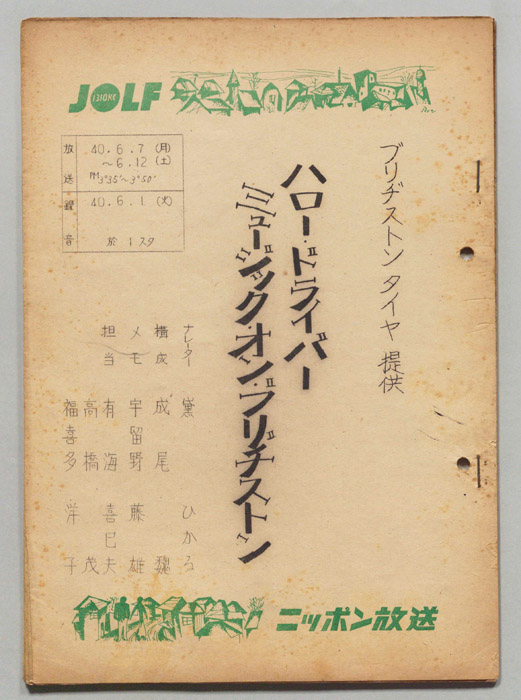 JOLF
1310KC
ブリヂストンタイヤ 提供
ハロー・ドライバー
ミュージック・オン・ブリヂストン
放送
40.6.7(月)
～6.12(土)
PM3°35'～3°50'
録音
40.6.1(火)
於 1スタ
ナレーター 黛 ひかる
構成 成尾 巍
メモ 宇留野 藤雄
担当 有海 喜巳夫
高橋 茂
福喜多 栄子
ニッポン放送